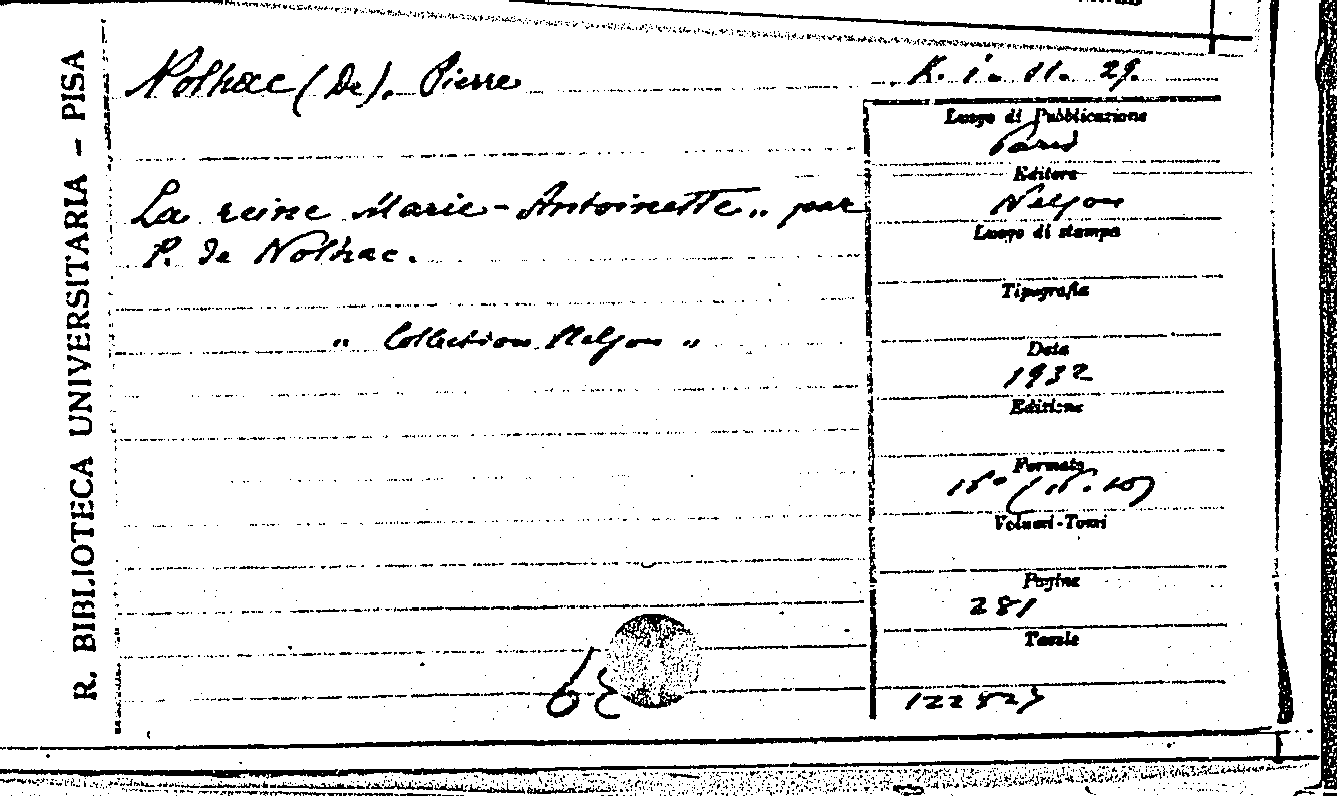 R. BIBLIOTECA UNIVERSITARIA - PISA
Nolhac (De), Pierre
K. i. 11. 29.
Luogo di Pubblicazione
Paris
Editore
Nelson
Luogo di stampa
Tipografia
Data
1932
Edizione
Formato
16°
Volumi-Tomi
Pagine
281
Tavole
La reine Marie-Antoinette „ par
P. de Nolhac.
„ Collection Nelson „